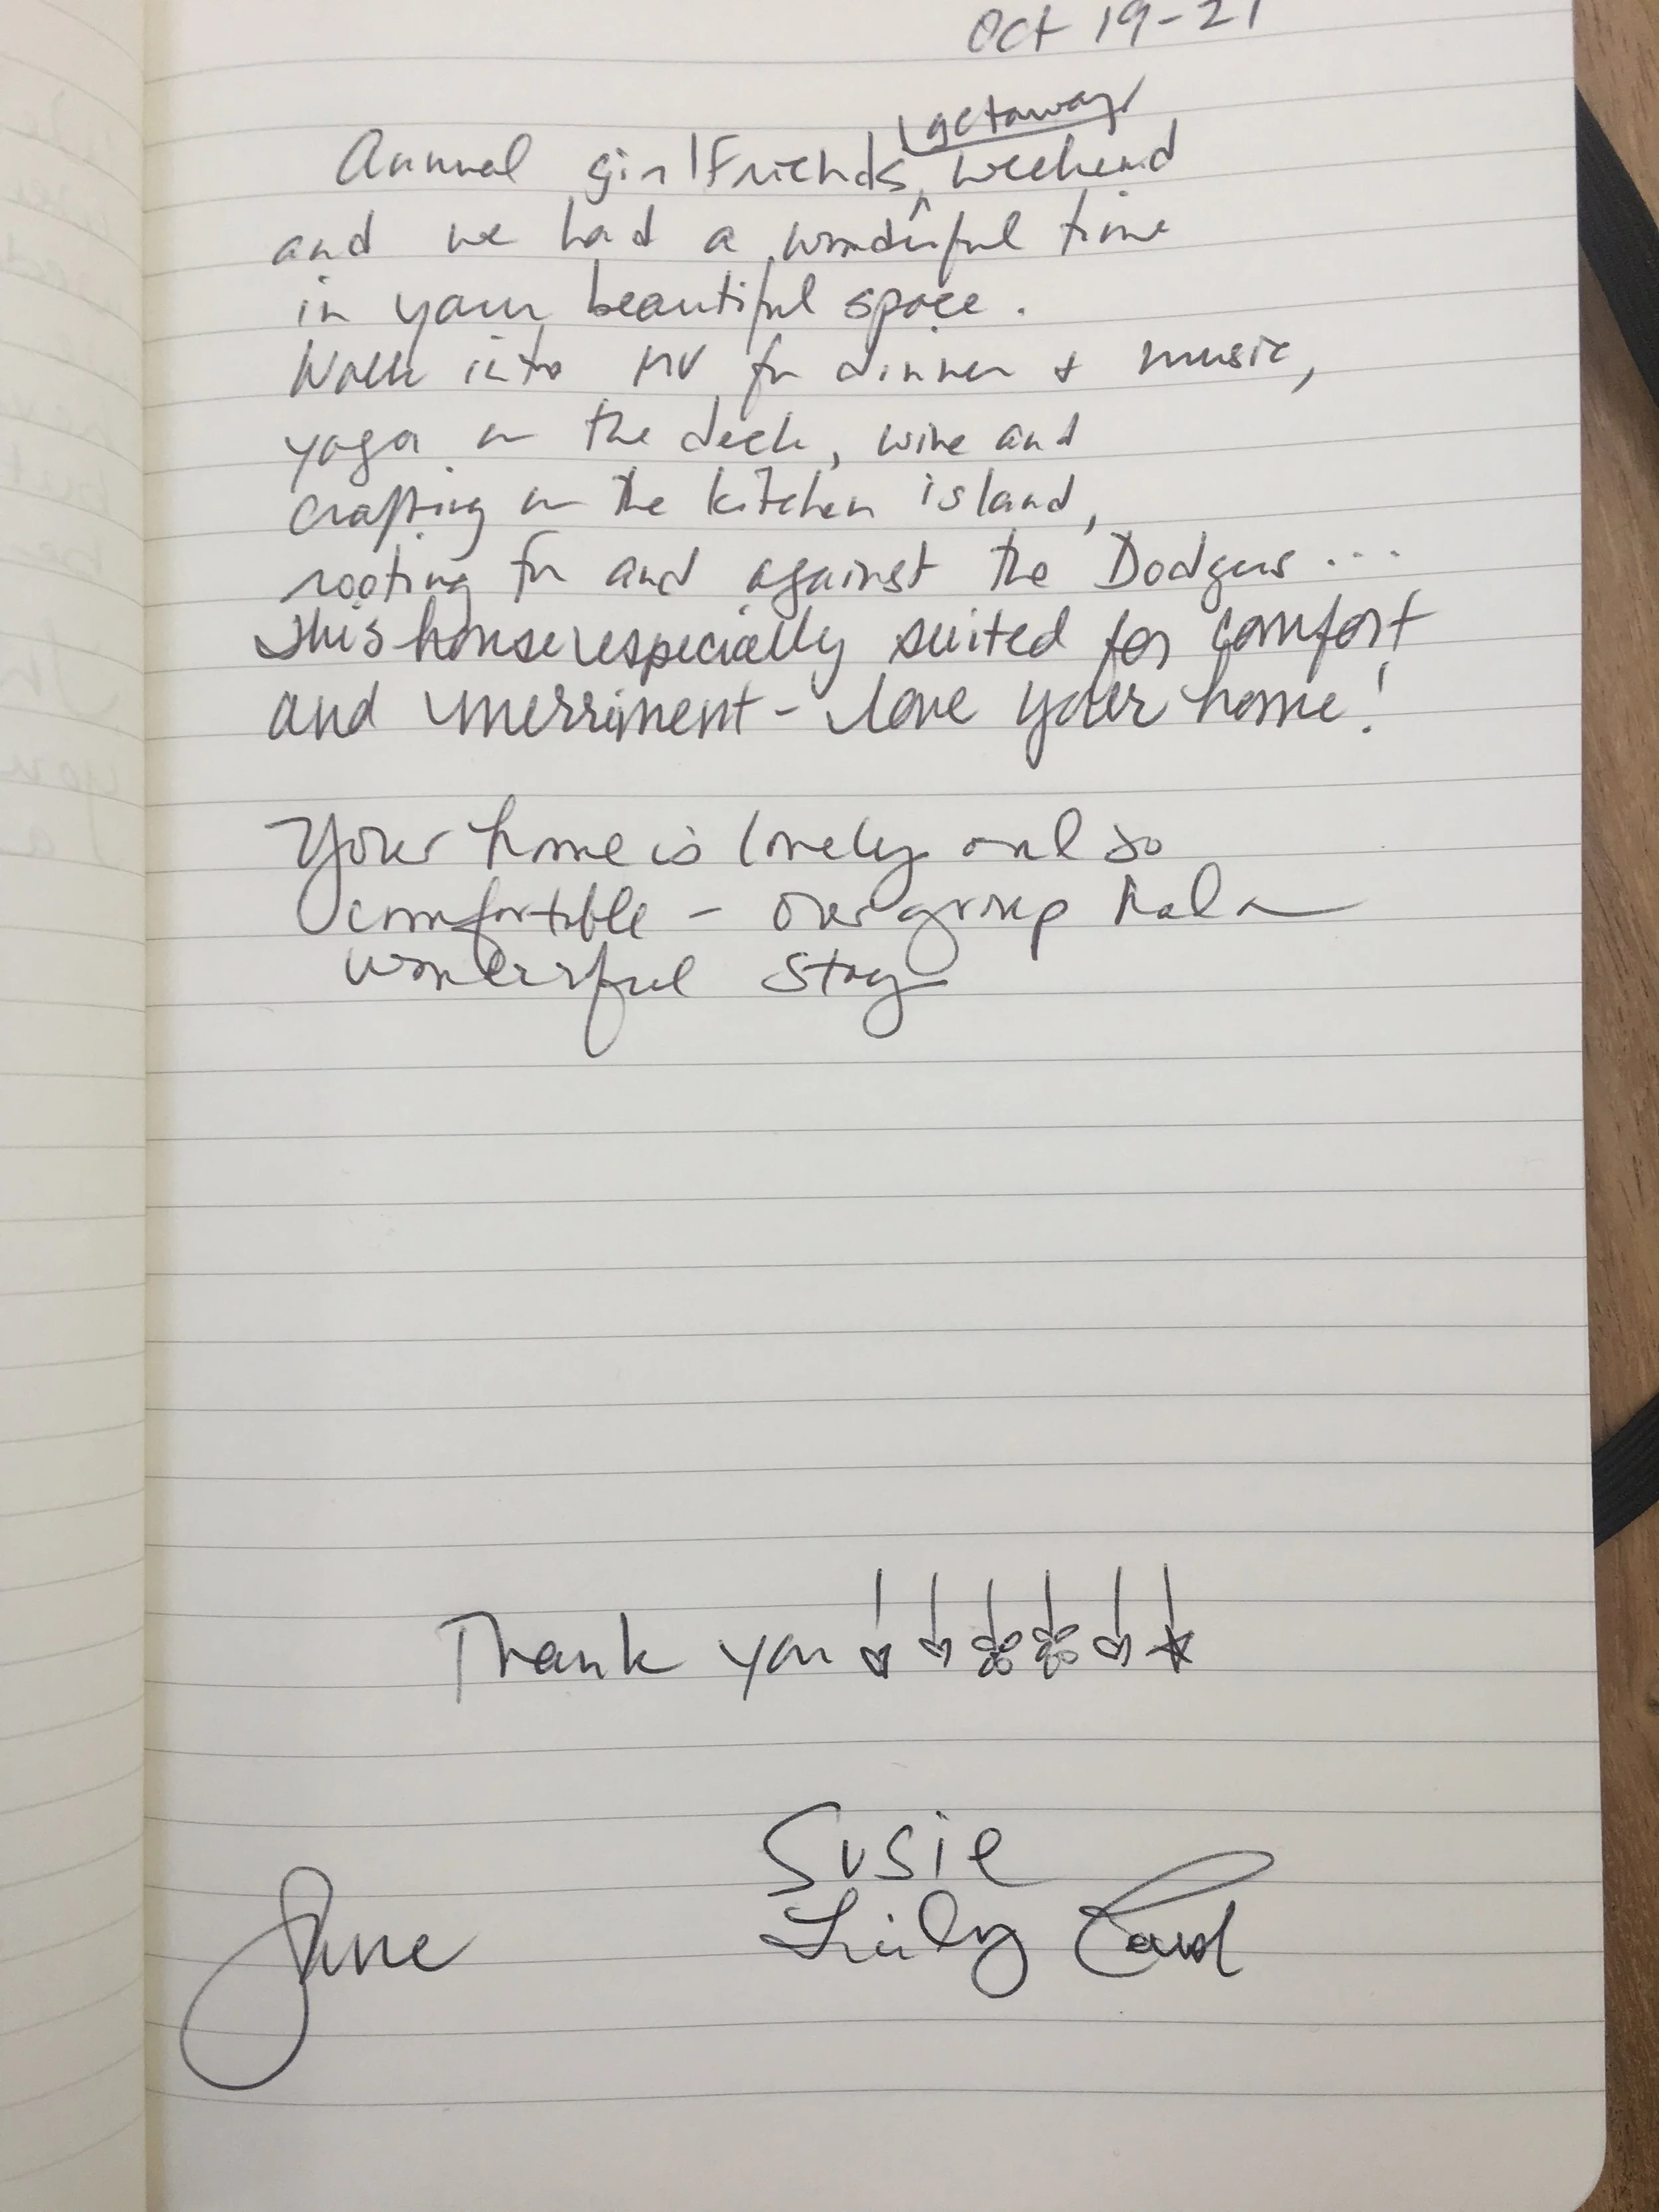 Oct 19-21
Annual girlfriends getaway weekend
and we had a wonderful time
in your beautiful space.
Walk into MV for dinner + music,
yoga on the deck, wine and
crafting on the kitchen island,
rooting for and against the Dodgers...
This house especially suited for comfort
and merriment - love your home!
Your home is lovely and so
comfortable - our group had a
wonderful stay
Thank you
Susie
June
Carol